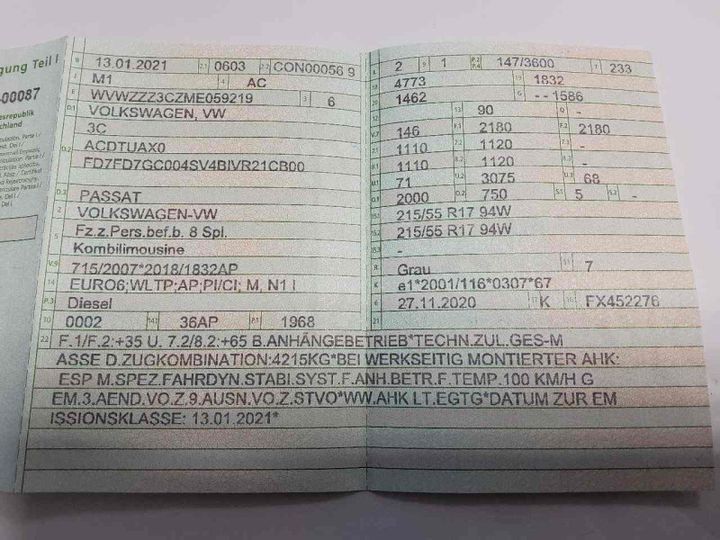 gung Teil I
-00087
esrepublik
chland
B 13.01.2021 2.1 0603 2.2 CON00056 9
J M1 4 AC
E WVWZZZ3CZME059219 3 6
D.1 VOLKSWAGEN, VW
3C
D.2 ACDTUAX0
FD7FD7GC004SV4BIVR21CB00
D.3 PASSAT
2 VOLKSWAGEN-VW
5 Fz.z.Pers.bef.b. 8 Spl.
Kombilimousine
V.9 715/2007*2018/1832AP
14 EURO6;WLTP;AP;PI/CI; M, N1 I
P.3 Diesel
10 0002 14.1 36AP P.1 1968
L 2 9 1 P.2 P.4 147/3600 T 233
18 4773 19 1832
20 1462 G --1586
12 - 13 90 Q -
V.7 146 F.1 2180 F.2 2180
7.1 1110 7.2 1120 7.3 -
8.1 1110 8.2 1120 8.3 -
U.1 71 U.2 3075 U.3 68
O.1 2000 O.2 750 S.1 5 S.2 -
15.1 215/55 R17 94W
15.2 215/55 R17 94W
15.3 -
R Grau 11 7
K e1*2001/116*0307*67
6 27.11.2020 17 K 16 FX452276
21
22 F.1/F.2:+35 U. 7.2/8.2:+65 B.ANHÄNGEBETRIEB*TECHN.ZUL.GES-M
ASSE D.ZUGKOMBINATION:4215KG*BEI WERKSEITIG MONTIERTER AHK:
ESP M.SPEZ.FAHRDYN.STABI.SYST.F.ANH.BETR.F.TEMP.100 KM/H G
EM.3.AEND.VO.Z.9.AUSN.VO.Z.STVO*WW.AHK LT.EGTG*DATUM ZUR EM
ISSIONSKLASSE: 13.01.2021*